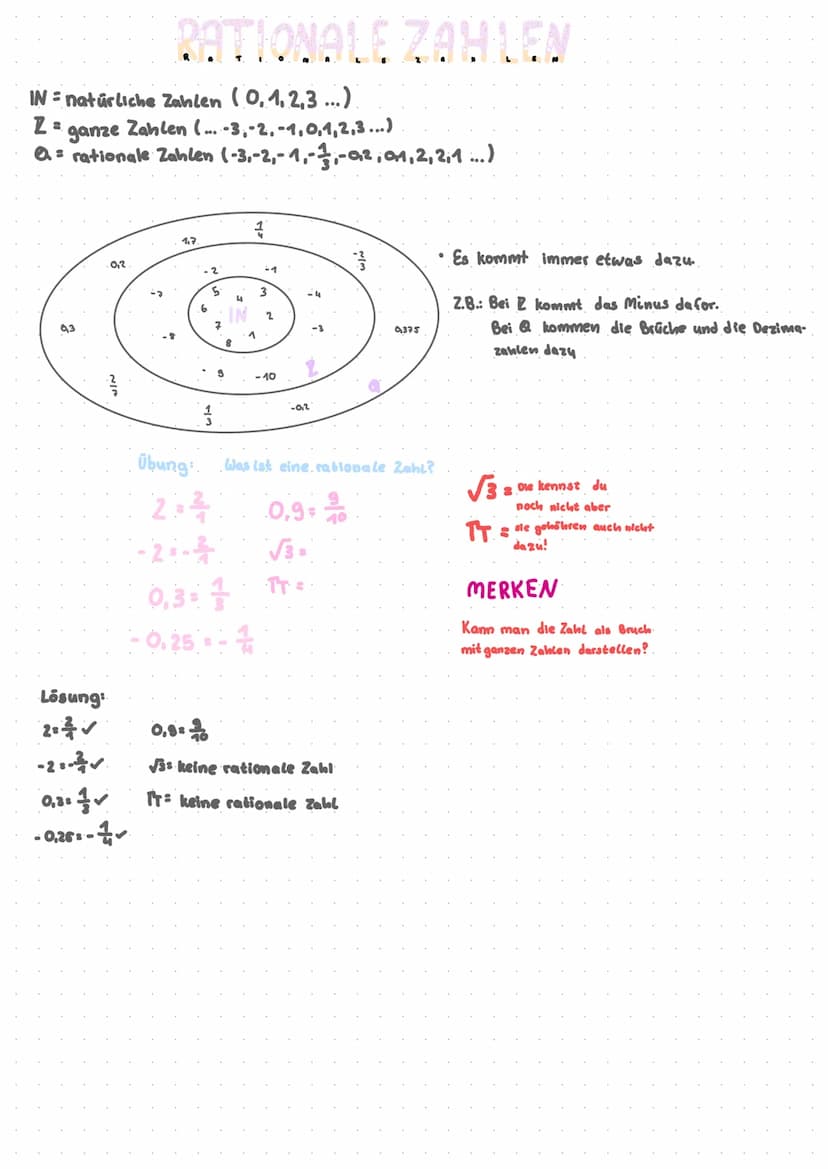 RATIONALE ZAHLEN
RATIONALE ZAHLEN
IN = natürliche Zahlen (0,1,2,3 ...)
Z = ganze Zahlen (... -3,-2,-1,0,1,2,3...)
Q = rationale Zahlen (-3,-2,-1,-1/3,-0,2, 0,1, 2, 2,1 ...)
1/4
1,7
-2/3
0,2
-2
-1
-7
5
4
3
-4
6
IN
2
0,3
7
1
-3
0,375
-8
8
- 9
-10
Z
Q
2/7
1/3
-0,2
• Es kommt immer etwas dazu.
Z.B.: Bei Z kommt das Minus dafor.
Bei Q kommen die Brüche und die Dezima-
zahlen dazu
Übung: Was ist eine rationale Zahl?
2 = 2/1
0,9 = 9/10
-2 = -2/1
√3 =
0,3 = 1/3
π =
-0,25 = -1/4
√3 = Die kennst du
noch nicht aber
π = sie gehöhren auch nicht
dazu!
MERKEN
Kann man die Zahl als Bruch
mit ganzen Zahlen darstellen?
Lösung:
2 = 2/1 ✓
0,9 = 9/10
-2 = -2/1 ✓
√3 = keine rationale Zahl
0,3 = 1/3 ✓
π = keine rationale Zahl
-0,25 = -1/4 ✓